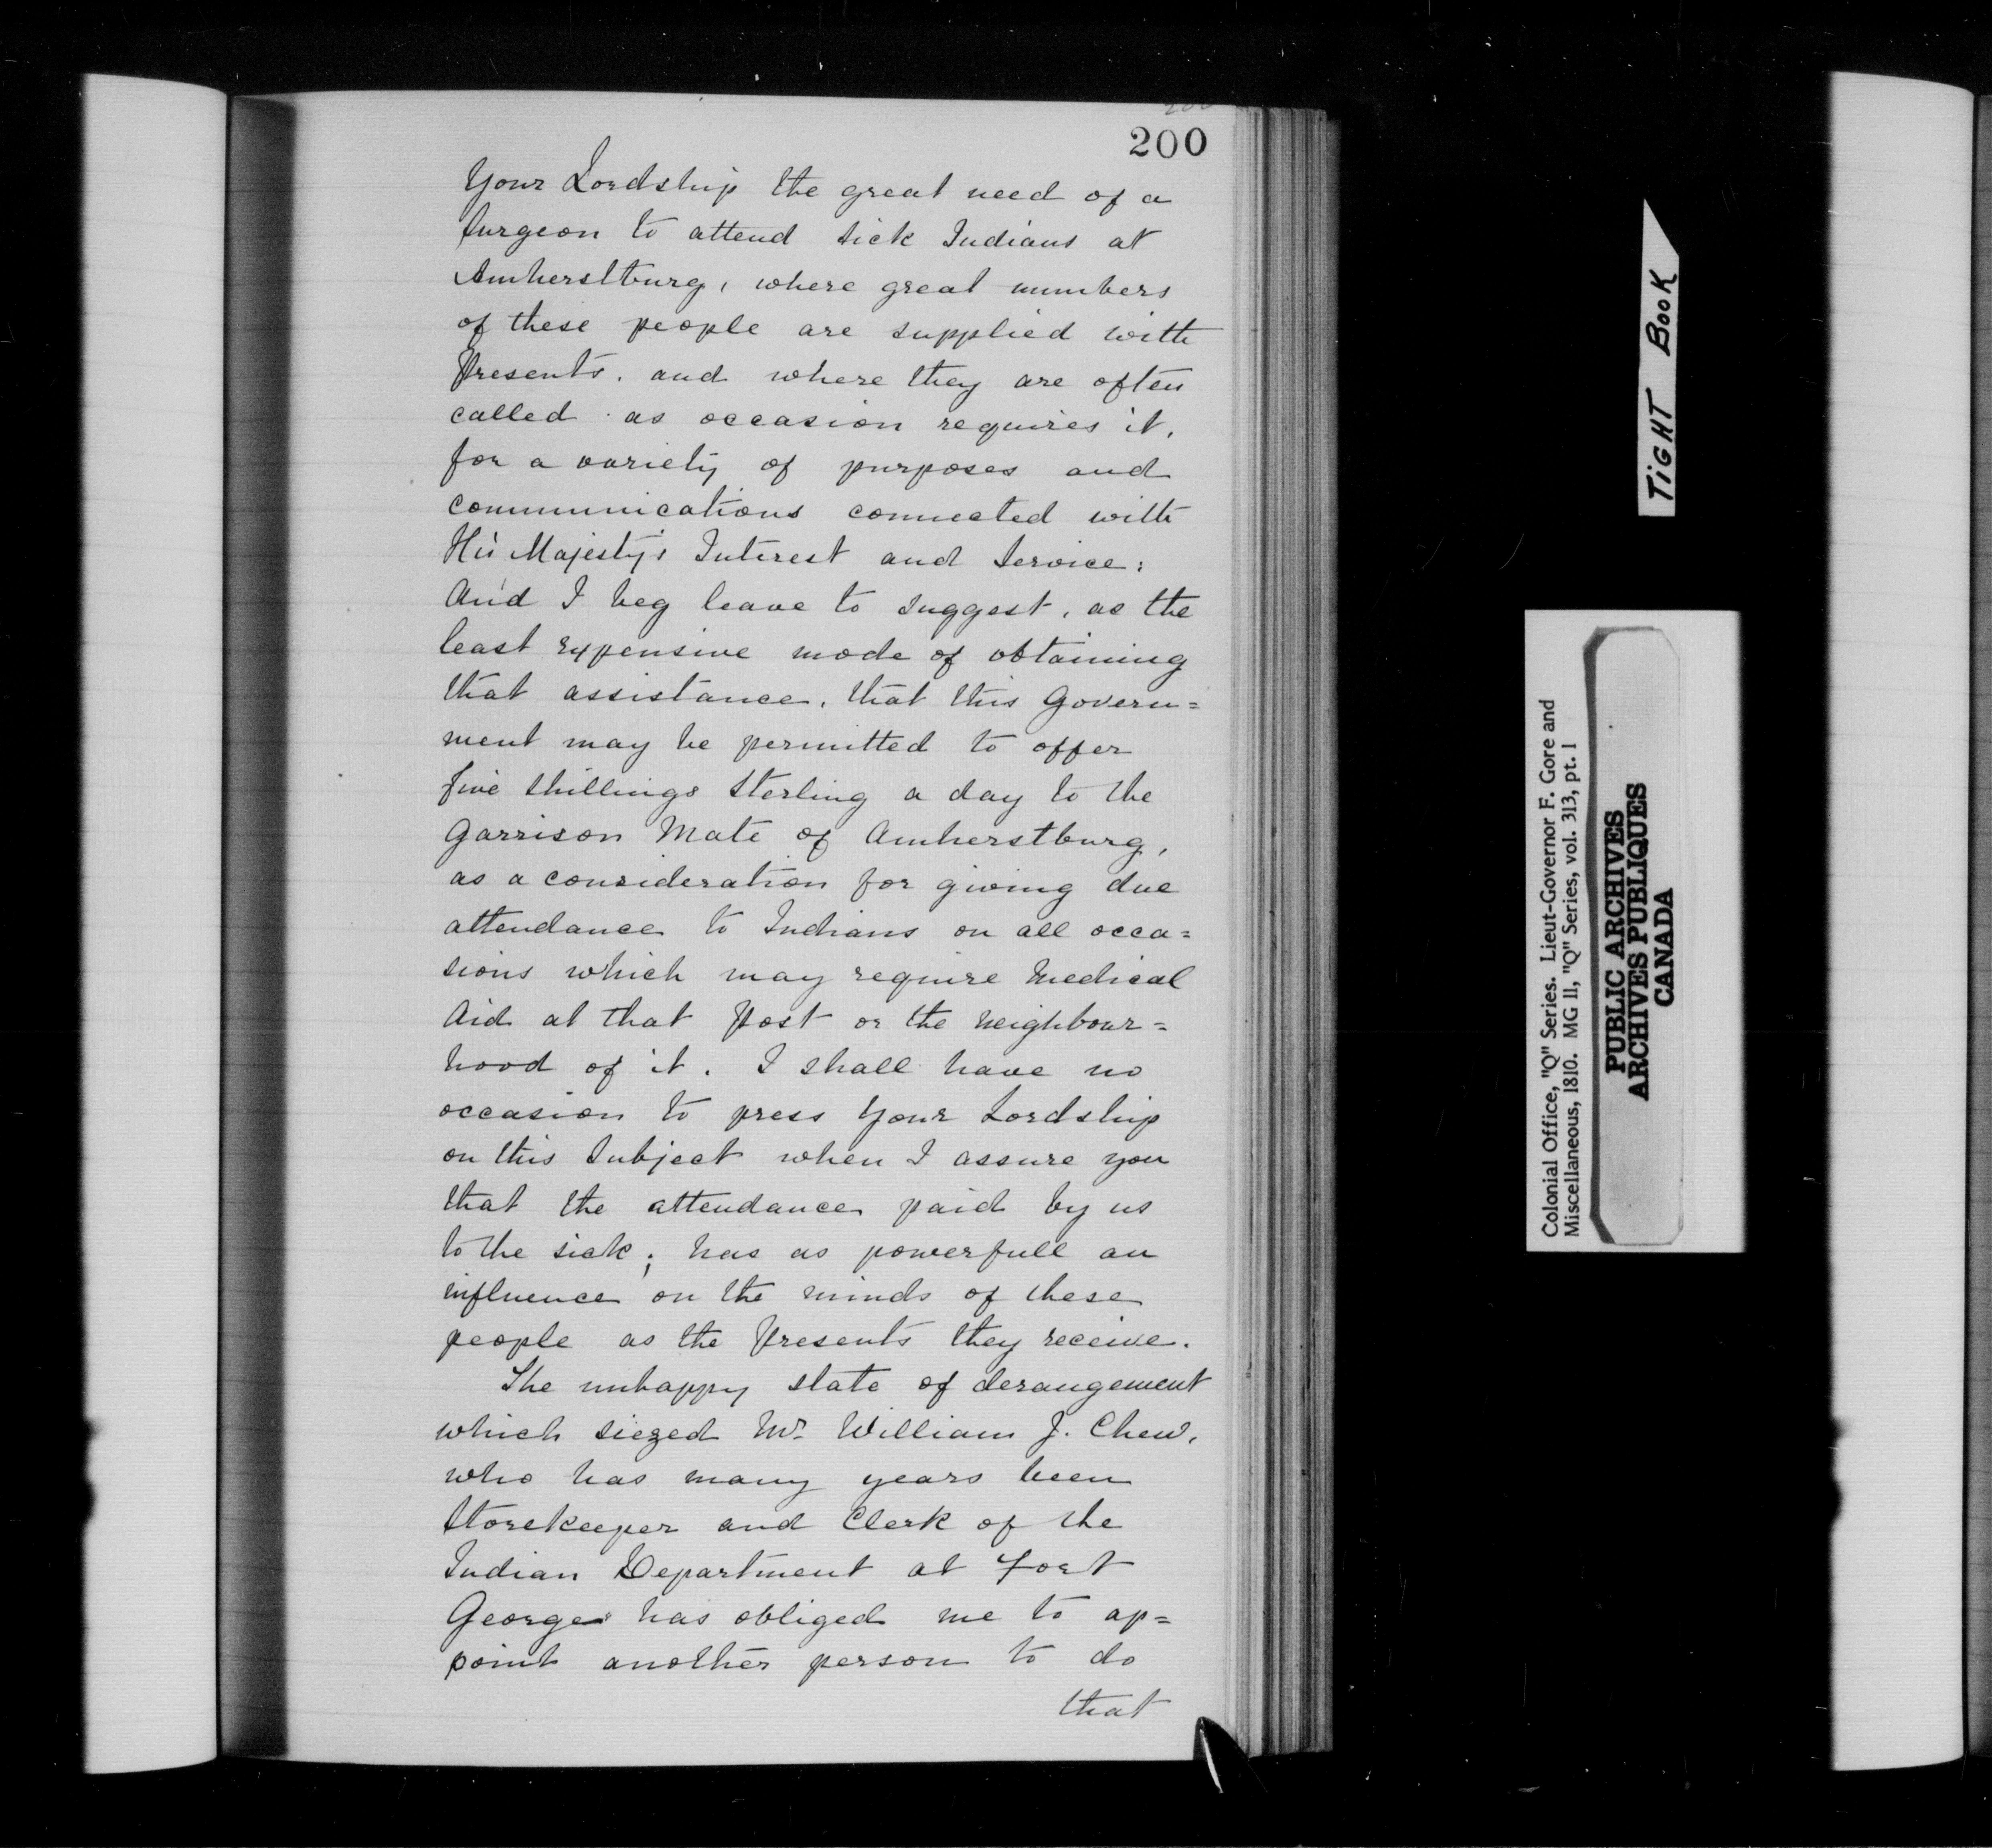 200
200
Your Lordship the great need of a
Surgeon to attend sick Indians at
Amherstburg, where great numbers
of these people are supplied with
Presents, and where they are often
called as occasion requires it,
for a variety of purposes and
communications connected with
His Majesty's Interest and Service:
And I beg leave to suggest, as the
least expensive mode of obtaining
that assistance, that this Govern=
ment may be permitted to offer
five shillings Sterling a day to the
Garrison Mate of Amherstburg,
as a consideration for giving due
attendance to Indians on all occa=
sions which may require Medical
Aid at that Post or the neighbour=
hood of it. I shall have no
occasion to press Your Lordship
on this Subject when I assure you
that the attendance paid by us
to the sick; has as powerfull an
influence on the minds of these
people as the Presents they receive.
The unhappy state of derangement
which siezed Mr. William J. Chew,
who has many years been
Storekeeper and Clerk of the
Indian Department at Fort
George has obliged me to ap=
point another person to do
that
TIGHT BOOK
Colonial Office, "Q" Series. Lieut-Governor F. Gore and
Miscellaneous, 1810. MG 11, "Q" Series, vol. 313, pt. 1
PUBLIC ARCHIVES
ARCHIVES PUBLIQUES
CANADA